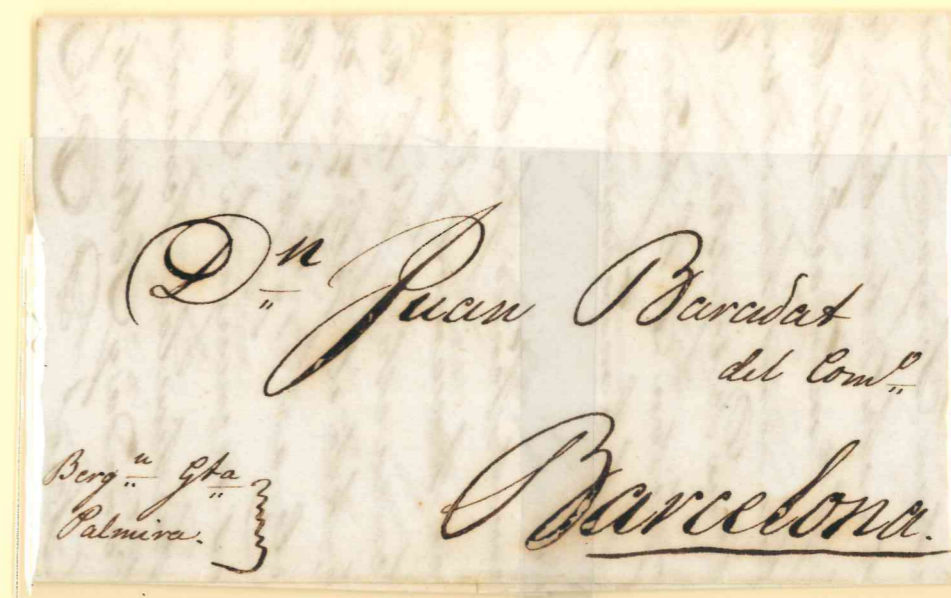 Dn Juan Baradat
del Como
Barcelona.
Bergn Gta
Palmira.